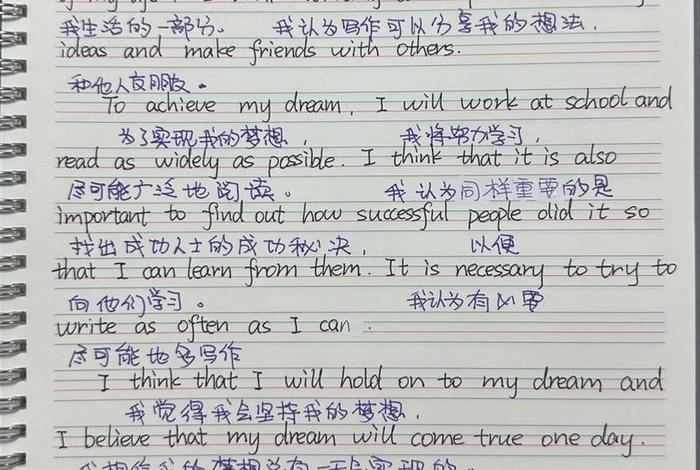 我生活的一部分。 我认为写作可以分享我的想法,
ideas and make friends with others.
和他人交朋友。
To achieve my dream, I will work at school and
为了实现我的梦想, 我将努力学习,
read as widely as possible. I think that it is also
尽可能广泛地阅读。 我认为同样重要的是
important to find out how successful people did it so
找出成功人士的成功秘决, 以便
that I can learn from them. It is necessary to try to
向他们学习。 我认为有必要
write as often as I can.
尽可能地多写作
I think that I will hold on to my dream and
我觉得我会坚持我的梦想,
I believe that my dream will come true one day.
我相信我的梦想总有一天会实现的。